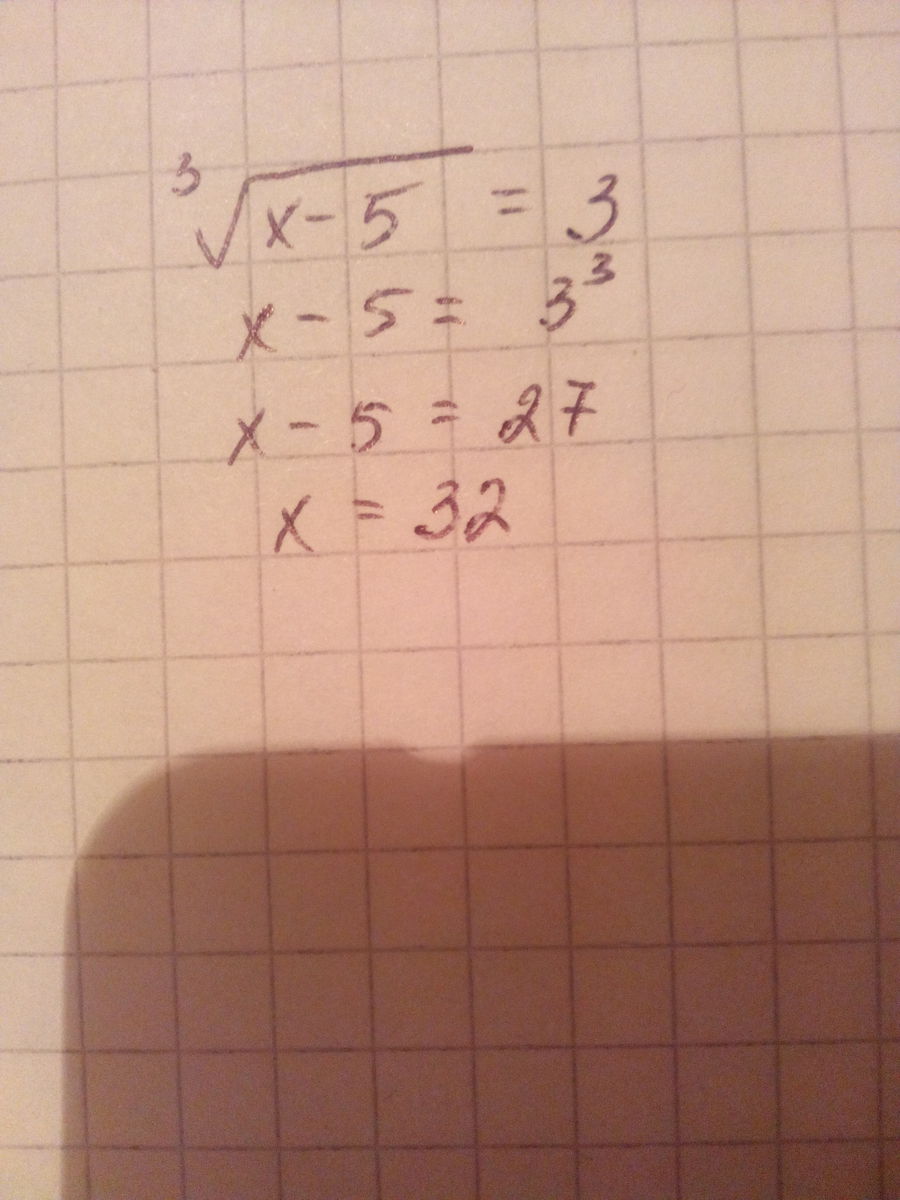 ∛(x-5) = 3
x - 5 = 3³
x - 5 = 27
x = 32